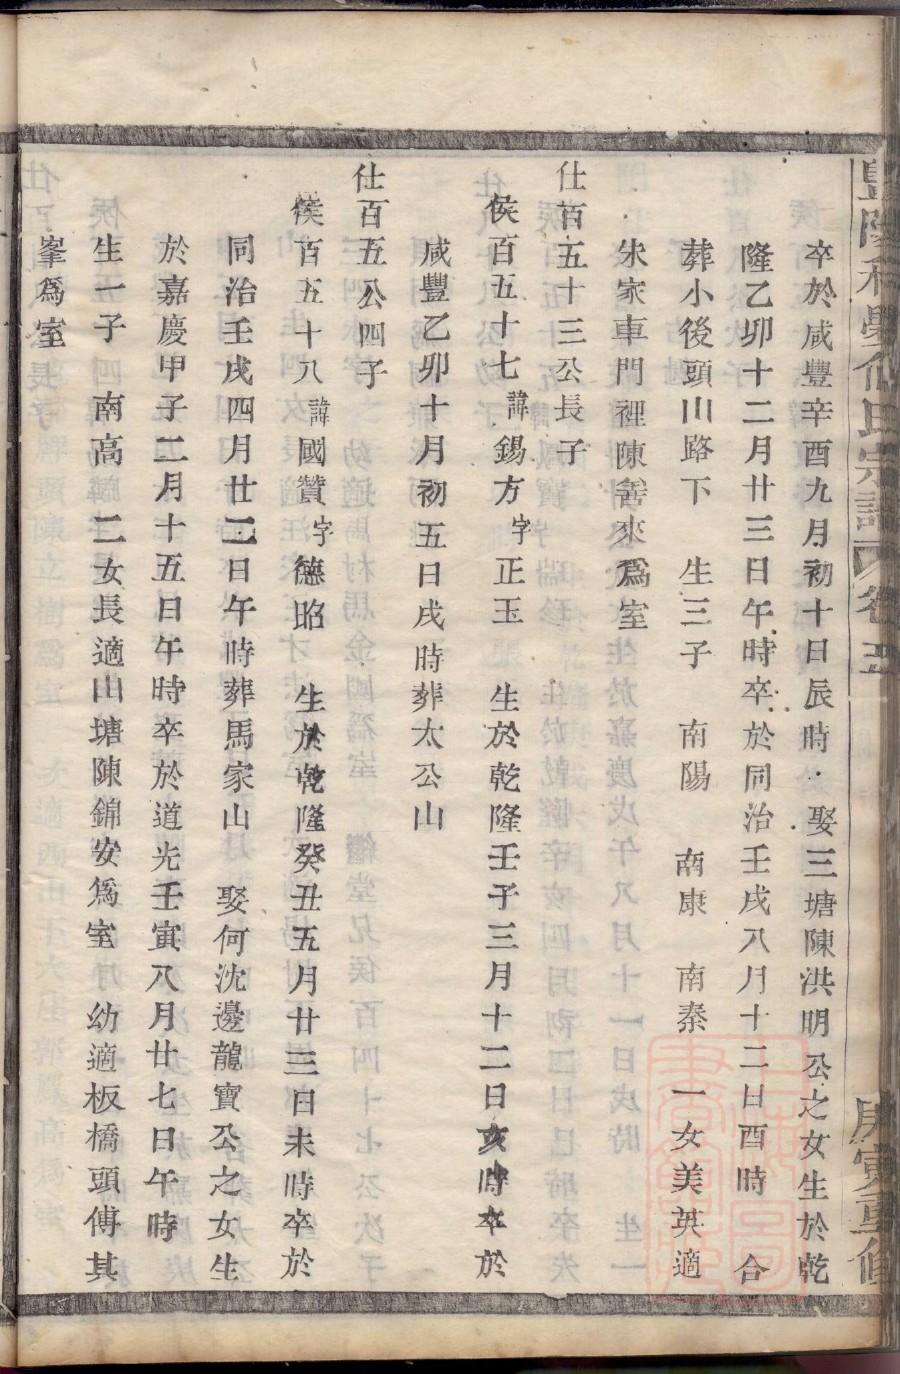 卒於咸豐辛酉九月初十日辰時 娶三塘陳洪明公之女生於乾
隆乙卯十二月廿三日午時卒於同治壬戌八月十二日酉時 合
葬小後頭山路下 生三子 南陽 南康 南秦 一女美英適
朱家車門裡陳善來為室
仕百五十三公長子
侯百五十七諱錫方字正玉 生於乾隆壬子三月十二日亥時卒於
咸豐乙卯十月初五日戌時葬太公山
仕百五公四子
侯百五十八諱國贊字德昭 生於乾隆癸丑五月廿三日未時卒於
同治壬戌四月廿二日午時葬馬家山 娶何沈邊龍寶公之女生
於嘉慶甲子二月十五日午時卒於道光壬寅八月廿七日午時
生一子 南高 二女長適山塘陳錦安為室 幼適板橋頭傅其
峯為室